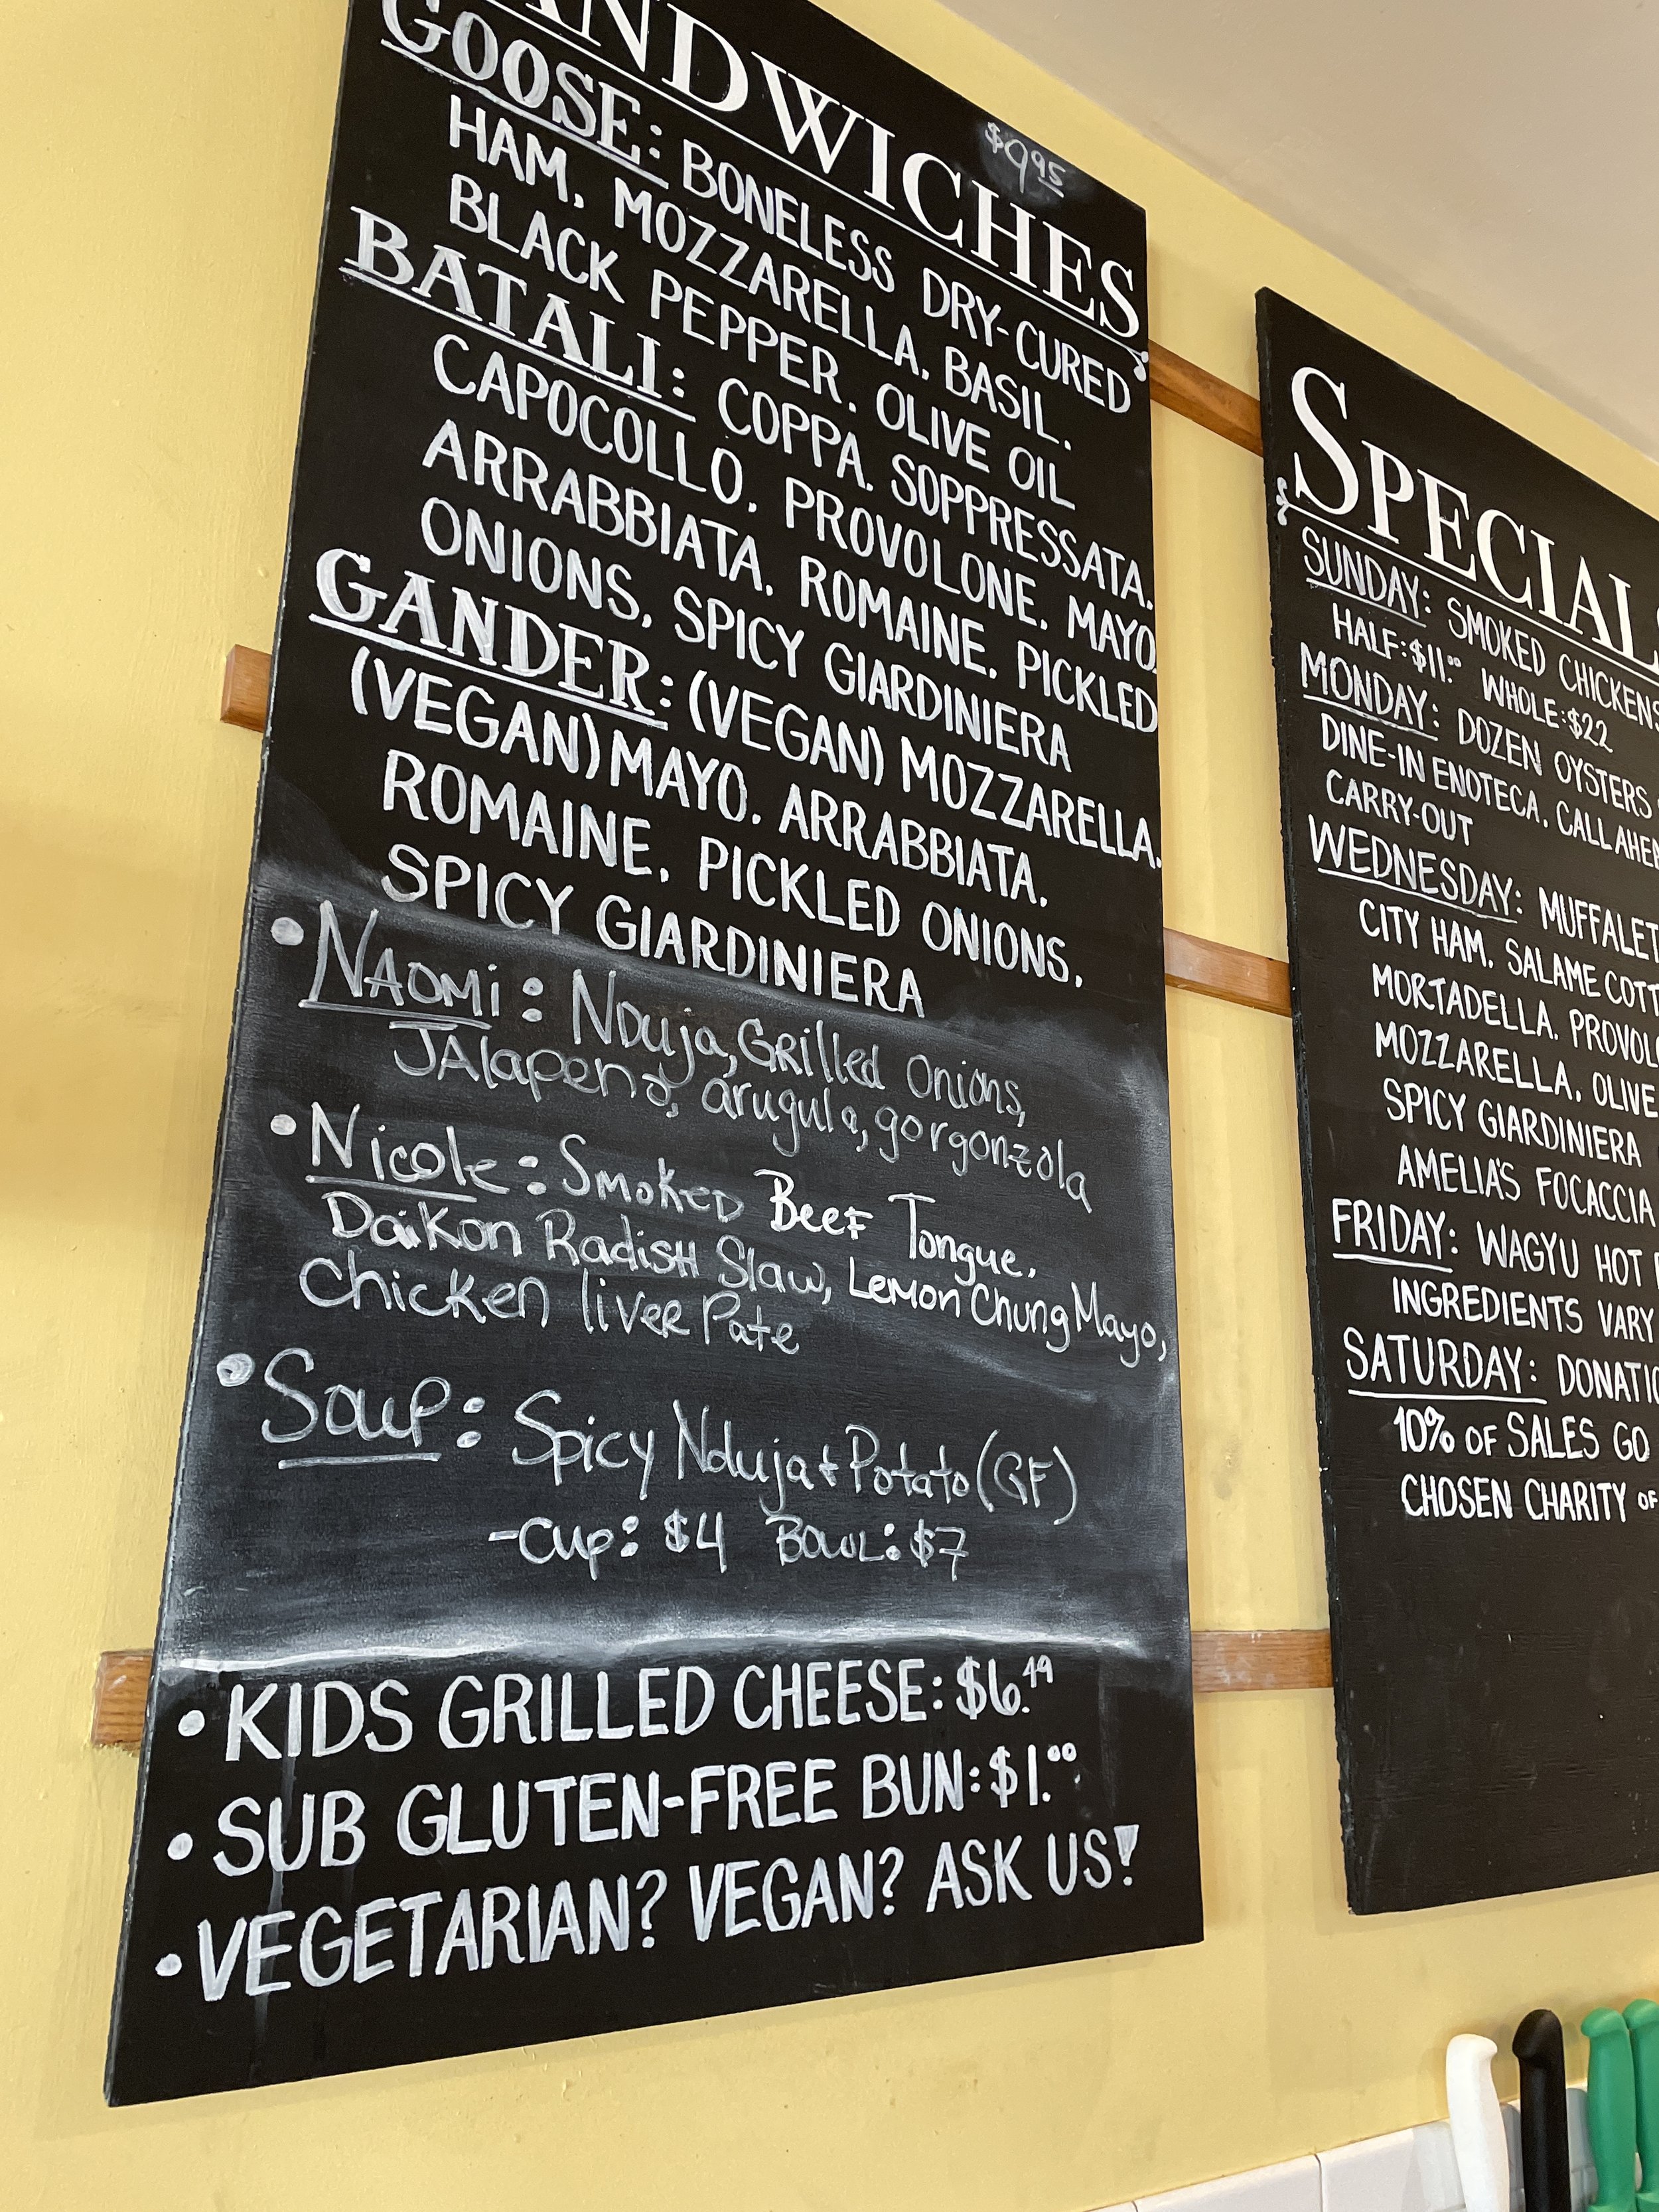 ANDWICHES $9.95
GOOSE: BONELESS DRY-CURED
HAM, MOZZARELLA, BASIL,
BLACK PEPPER, OLIVE OIL
BATALI: COPPA, SOPPRESSATA,
CAPOCOLLO, PROVOLONE, MAYO,
ARRABBIATA, ROMAINE, PICKLED
ONIONS, SPICY GIARDINIERA
GANDER: (VEGAN) MOZZARELLA,
(VEGAN) MAYO, ARRABBIATA,
ROMAINE, PICKLED ONIONS,
SPICY GIARDINIERA
• NAOMi: NDuja, GRilled Onions,
JAlapeno, arugula, gorgonzola
• Nicole: SmoKED BeeF Tongue,
DaiKon RadisH Slaw, Lemon Chung Mayo,
chicKen liveR Pate
• Soup: Spicy Nduja + Potato (GF)
-Cup: $4 BOWL: $7
• KIDS GRILLED CHEESE: $6.49
• SUB GLUTEN-FREE BUN: $1.00
• VEGETARIAN? VEGAN? ASK US!
SPECIALS
SUNDAY: SMOKED CHICKENS
HALF: $11.00 WHOLE: $22
MONDAY: DOZEN OYSTERS
DINE-IN ENOTECA, CALLAHE
CARRY-OUT
WEDNESDAY: MUFFALET
CITY HAM, SALAME COTT
MORTADELLA, PROVOL
MOZZARELLA, OLIVE
SPICY GIARDINIERA
AMELIA'S FOCACCIA
FRIDAY: WAGYU HOT
INGREDIENTS VARY
SATURDAY: DONATIO
10% OF SALES GO
CHOSEN CHARITY OF